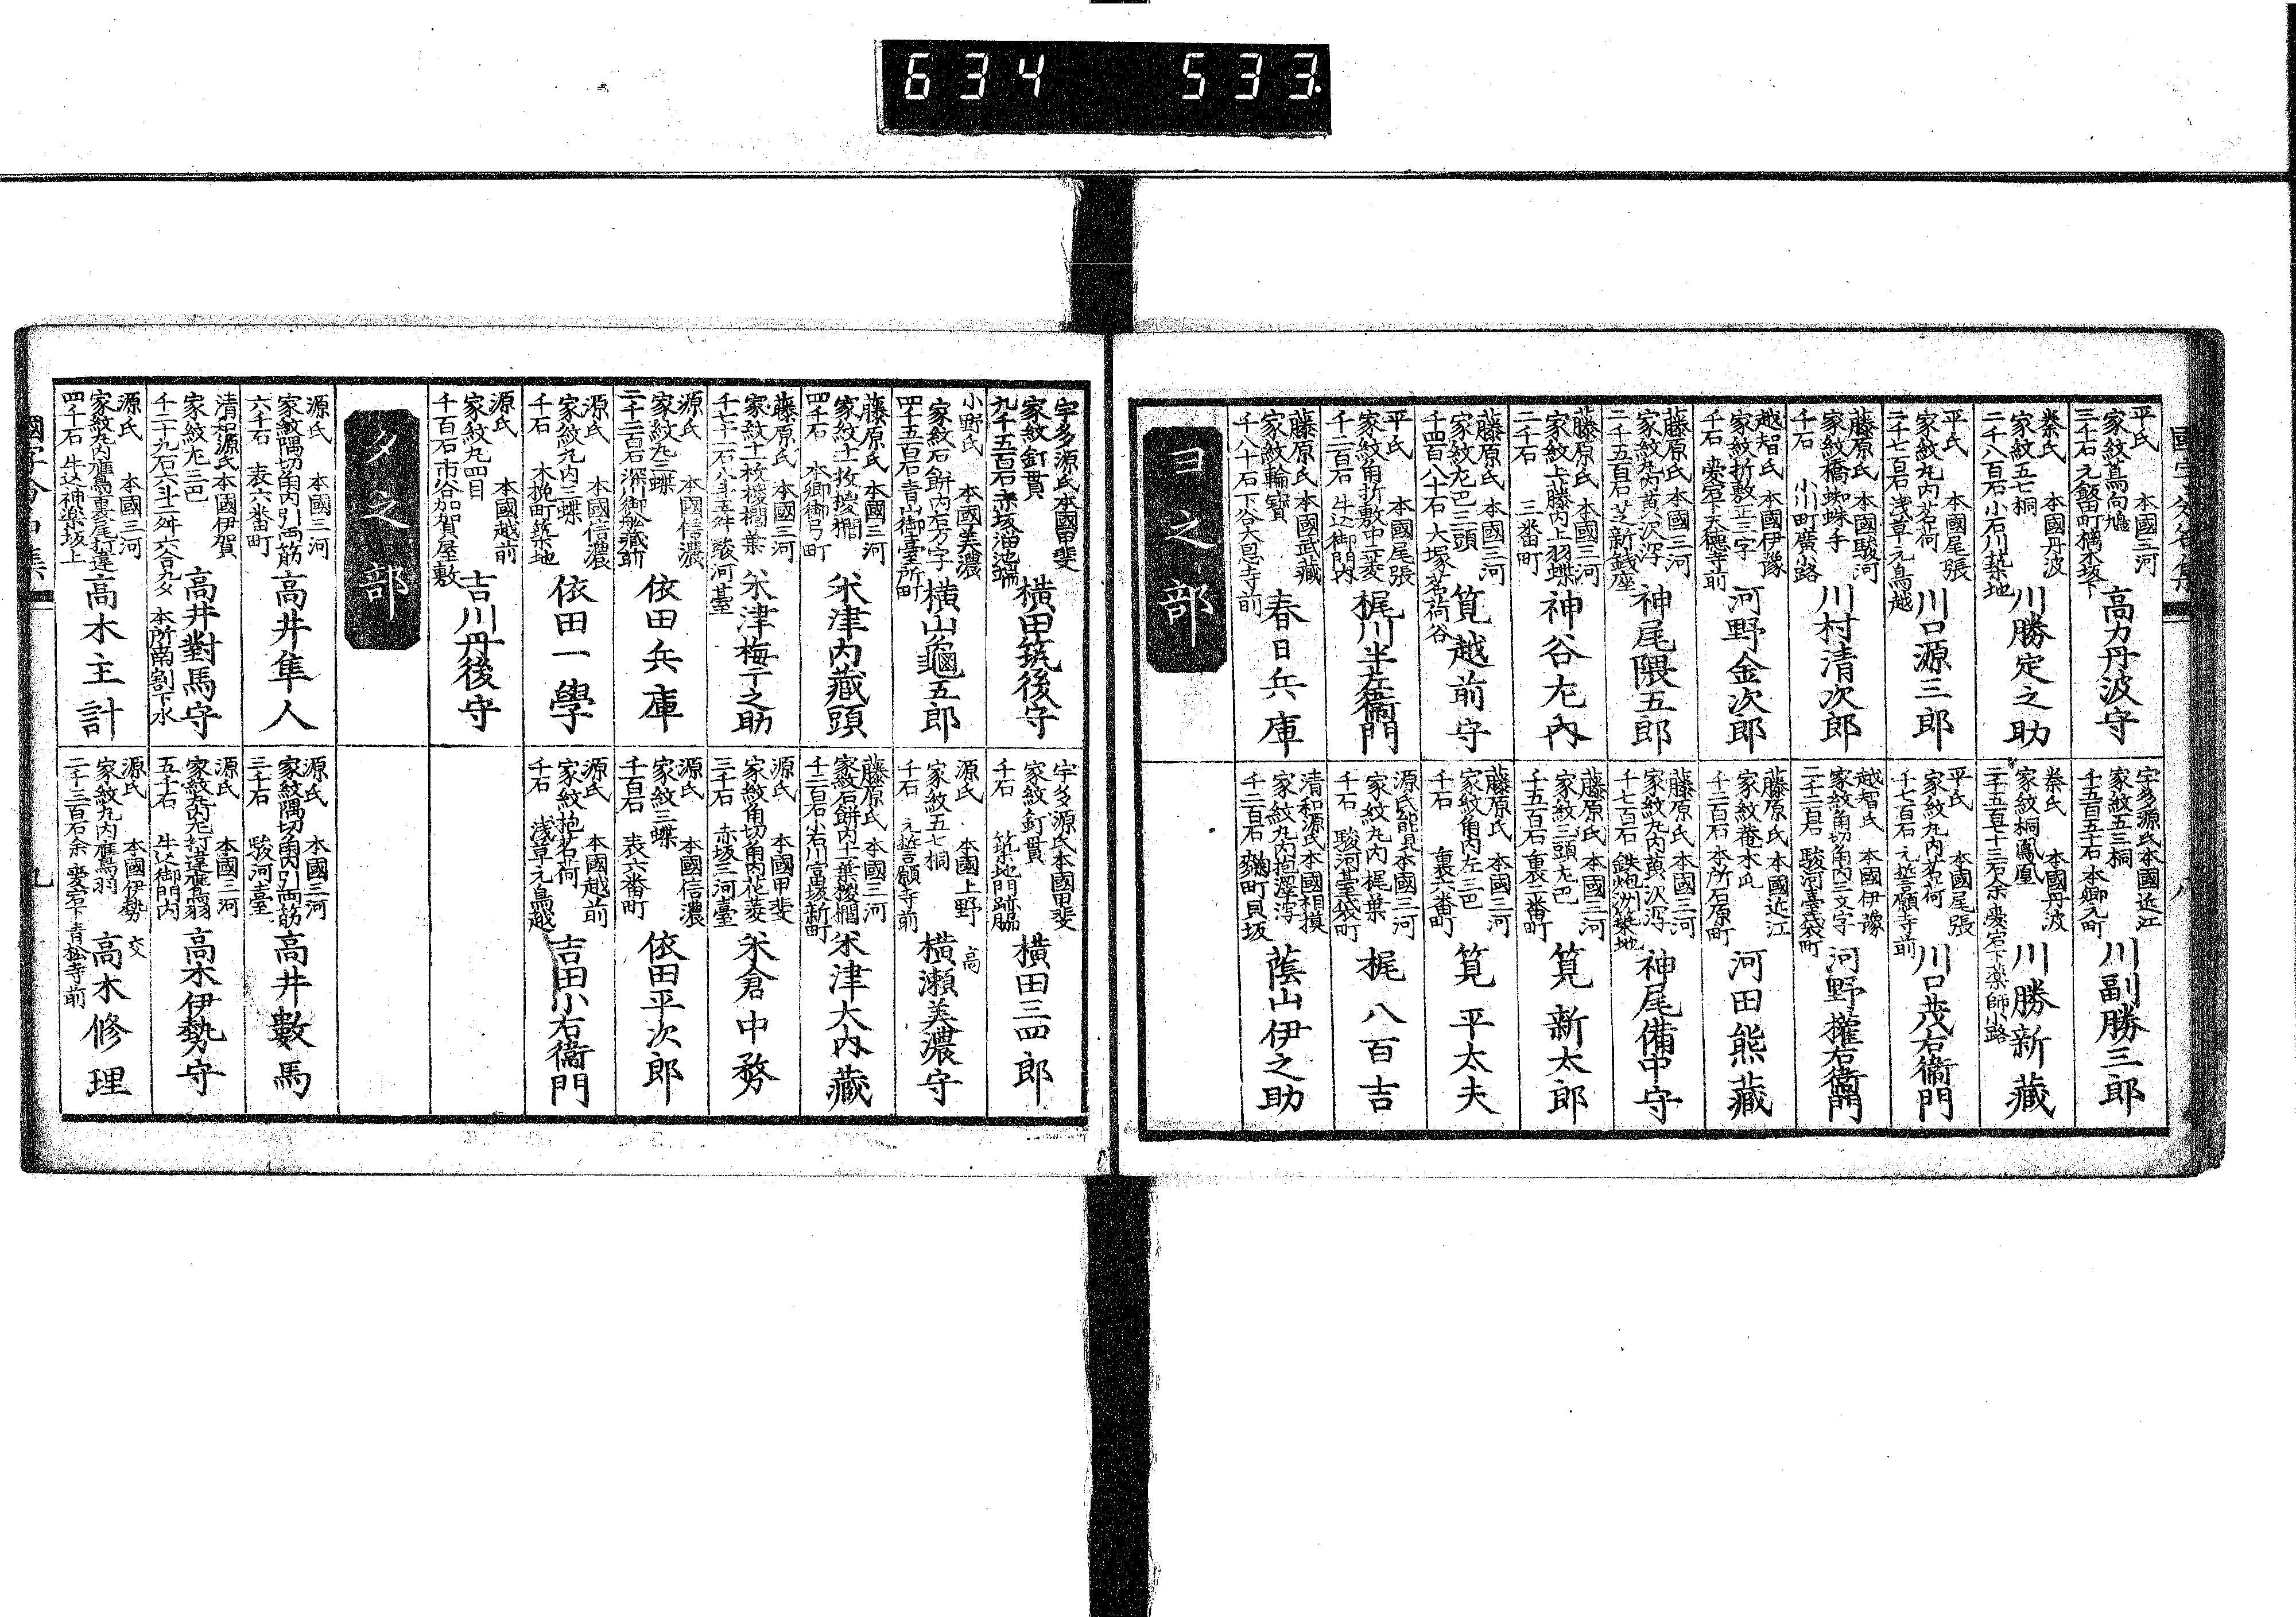 634 533
平氏 本國三河
家紋鳥向鳩
三千石 元飯田町
高力丹波守
秦氏 本國丹波
家紋五七桐
二千八百石 小石川築地
川勝定之助
平氏 本國尾張
家紋丸内茗荷
二千七百石 浅草元鳥越
川口源三郎
藤原氏 本國駿河
家紋橋蜘蛛手
千石 小川町廣小路
川村清次郎
越智氏 本國伊豫
家紋折敷三文字
千石 愛宕下天徳寺前
河野金次郎
藤原氏 本國三河
家紋丸内黄沢瀉
二千五百石 芝新錢座
神尾隈五郎
藤原氏 本國三河
家紋上藤内上羽蝶
二千石 三番町
神谷左内
藤原氏 本國三河
家紋左巴三頭
千四百八十石 大塚茗荷谷
筧越前守
平氏 本國尾張
家紋角折敷中菱
千二百石 牛込御門内
梶川半左衞門
藤原氏 本國武藏
家紋輪寳
千八十石 下谷大恩寺前
春日兵庫
ヨ之部
宇多源氏 本國近江
家紋五三桐
千五百五十石 本郷元町
川副勝三郎
秦氏 本國丹波
家紋桐鳳凰
二千五百七十三石余 愛宕下薬師小路
川勝新藏
平氏 本國尾張
家紋丸内茗荷
千七百石 元誓願寺前
川口茂右衞門
越智氏 本國伊豫
家紋角切角内三文字
駿河臺袋町
河野權右衞門
藤原氏 本國近江
家紋菴木瓜
千二百石 本所石原町
河田熊藏
藤原氏 本國三河
家紋丸内黄沢瀉
千七百石 鉄炮洲築地
神尾備中守
藤原氏 本國三河
家紋三頭左巴
千五百石 裏二番町
筧新太郎
藤原氏 本國三河
家紋角内左三巴
千石 裏六番町
筧平太夫
源氏能見 本國三河
家紋丸内梶葉
千石 駿河臺袋町
梶八百吉
清和源氏 本國相摸
家紋丸内抱澤瀉
千二百石 麹町貝坂
蔭山伊之助
宇多源氏 本國甲斐
家紋釘貫
九千五百石 赤坂溜池端
横田筑後守
小野氏 本國美濃
家紋石餅内左万字
四千五百石 青山御臺所町
横山龜五郎
藤原氏 本國三河
四千石 本郷御弓町
米津内藏頭
藤原氏 本國三河
家紋十一枚椶櫚葉
駿河臺
米津梅干之助
源氏 本國信濃
家紋丸三蝶
二千二百石 深川御舩藏前
依田兵庫
源氏 本國信濃
家紋丸内三蝶
千石 木挽町築地
依田一學
源氏 本國越前
家紋丸四目
千百石 市谷加賀屋敷
吉川丹後守
タ之部
源氏 本國三河
家紋隅切角内引両筋
六千石 表六番町
高井隼人
清和源氏 本國伊賀
家紋左三巴
千二十九石六斗二舛六合九夕 本所南割下水
高井對馬守
源氏 本國三河
四千石 牛込神楽坂上
高木主計
宇多源氏 本國甲斐
家紋釘貫
千石 築地門跡脇
横田三四郎
源氏 本國上野
家紋五七桐
千石 元誓願寺前
高
横瀬美濃守
藤原氏 本國三河
家紋石餅内十一葉椶櫚
米津大内藏
源氏 本國甲斐
家紋角切角内花菱
三千石 赤坂三河臺
米倉中務
源氏 本國信濃
家紋三蝶
千百石 表六番町
依田平次郎
源氏 本國越前
家紋抱茗荷
千石 浅草元鳥越
吉田小右衞門
源氏 本國三河
家紋隅切角内引両筋
三千石 駿河臺
高井數馬
源氏 本國三河
家紋丸内左打違鷹羽
五千石 牛込御門内
高木伊勢守
源氏 本國伊勢
家紋丸内鷹羽
二千三百石余 愛宕下青松寺前
交
高木修理
九